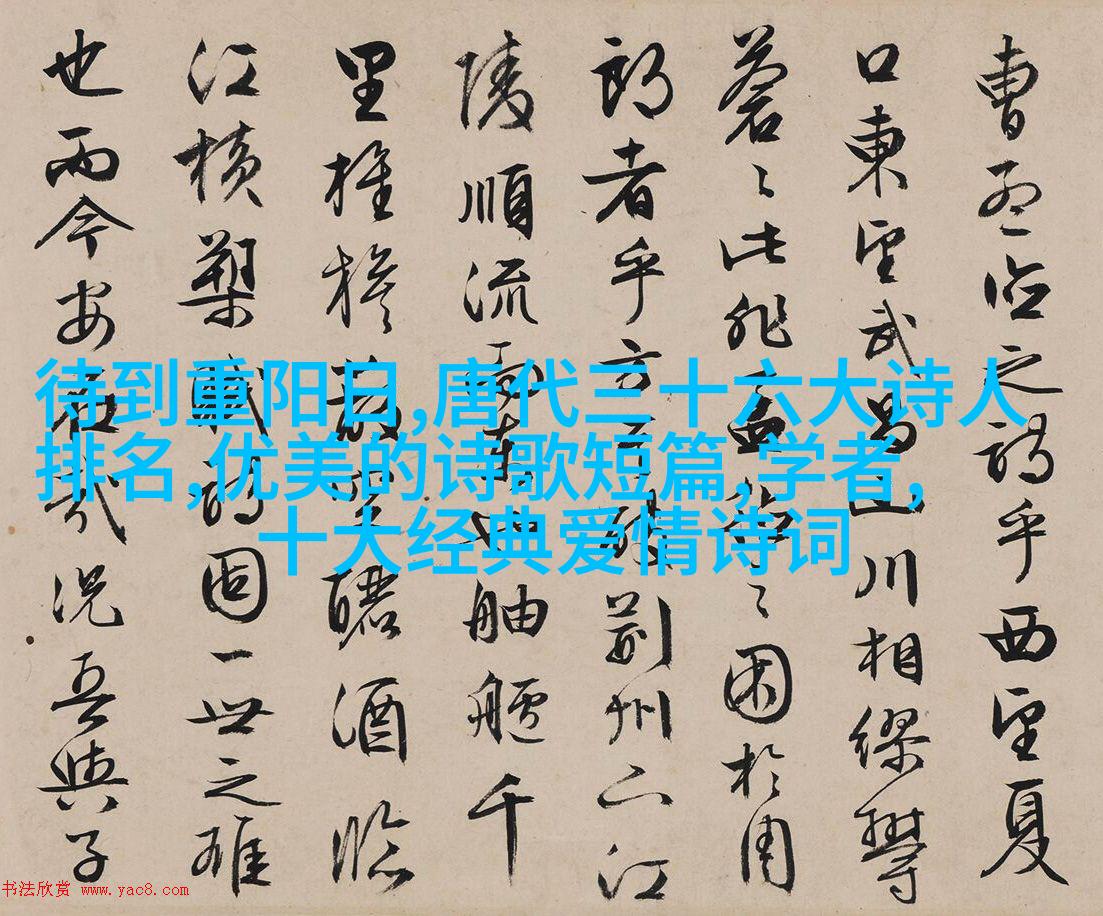 曹孟德之詩乎西望夏
口東望武昌山川相繆鬱乎
蒼々此非孟德之困於周
郎者乎方其破荊州下江
陵順流而東也舳艫千
里旌旗蔽空釃酒臨
江橫槊賦詩固一世之雄
也而今安在哉況吾與子
待到重阳日,唐代三十六大诗人
排名,优美的诗歌短篇,学者,
十大经典爱情诗词
书法欣赏 www.yac8.com